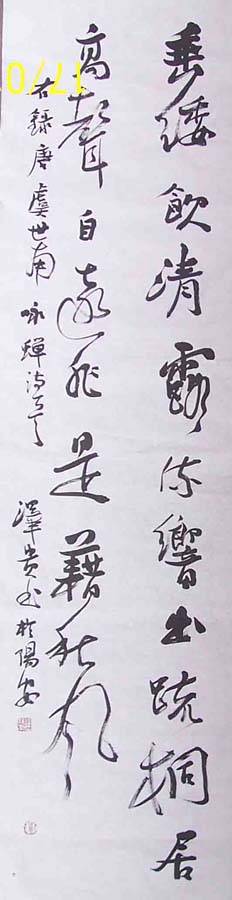 垂緌飲清露流響出疏桐居
高聲自遠非是藉秋風
右錄唐虞世南咏蟬詩一首 書於陽安